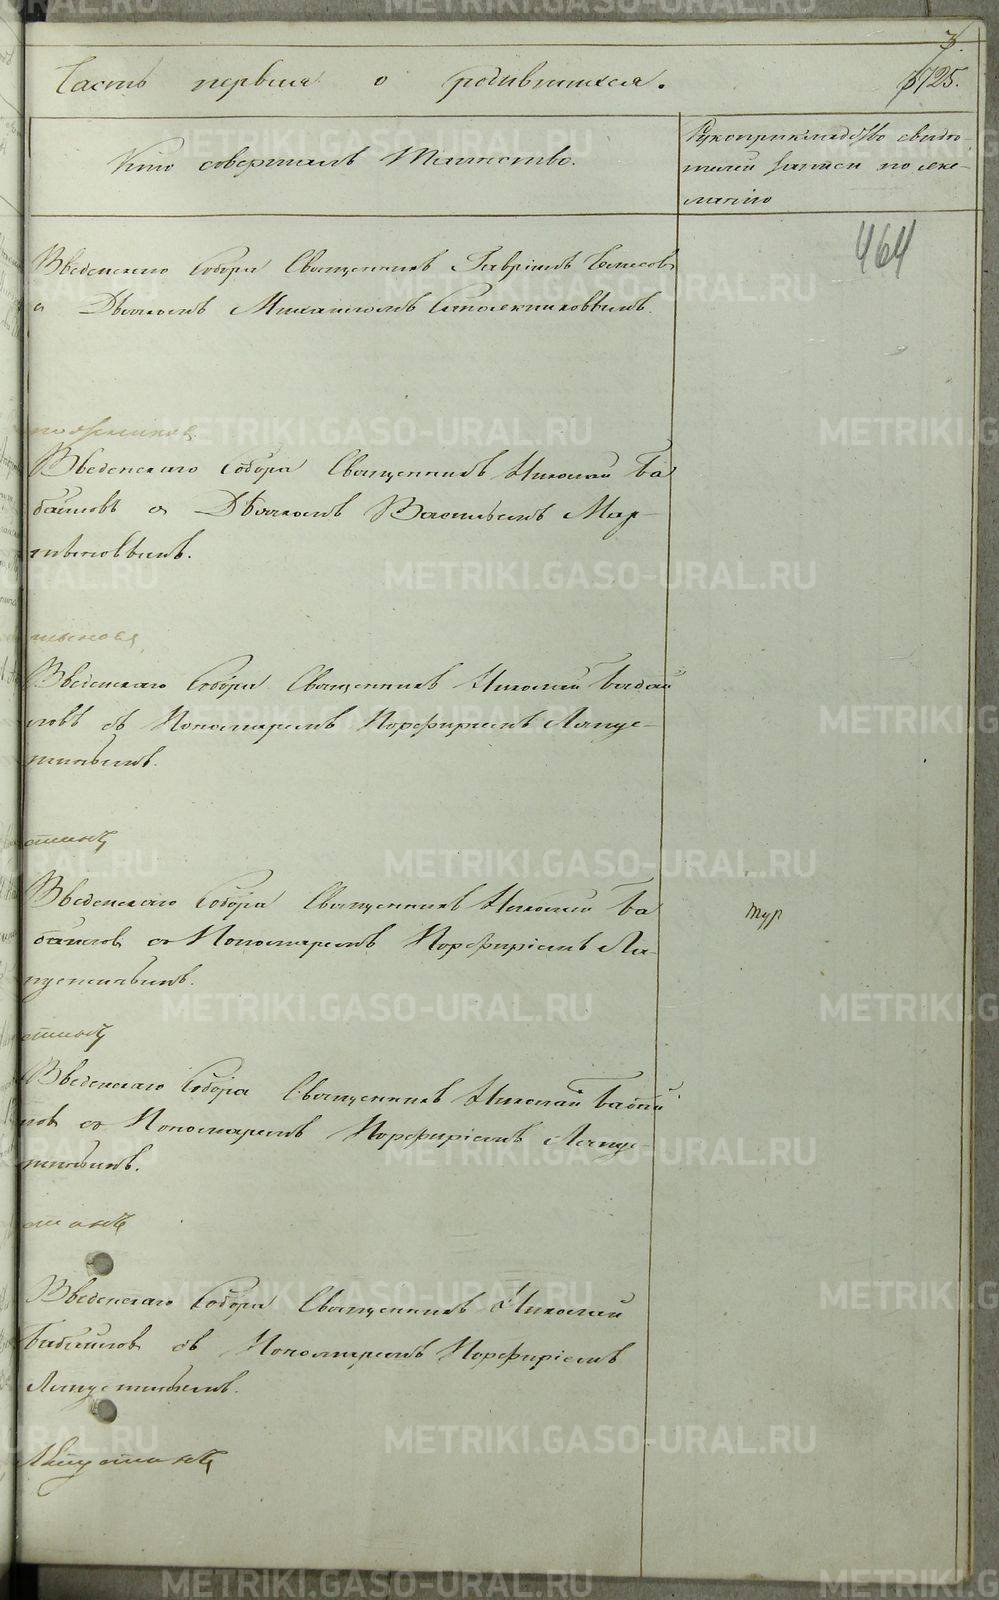 3.
125.
Часть первая о родившихся.
Кто совершалъ Таинство.
Рукоприкладство свидѣ-
телей записи по же-
ланію
464
Введенскаго Собора Священникъ Гавріилъ
с Діакономъ Михаиломъ Сапожниковымъ.
Введенскаго Собора Священникъ Николай Ба
байловъ с Діакономъ Васильемъ Мар-
тыновымъ.
тыновъ
Введенскаго Собора Священникъ Николай Бабай
ловъ съ Пономаремъ Порфиріемъ Ляпус-
тинымъ.
стинъ
Введенскаго Собора Священникъ Николай Ба
байловъ съ Пономаремъ Порфиріемъ Ля-
пустинымъ.
тур
стинъ
Введенскаго Собора Священникъ Николай Бабай
ловъ съ Пономаремъ Порфиріемъ Ляпус-
тинымъ.
стинъ
Введенскаго Собора Священникъ Николай
Бабайловъ съ Пономаремъ Порфиріемъ
Ляпустинымъ.
Ляпустинъ
METRIKI.GASO-URAL.RU